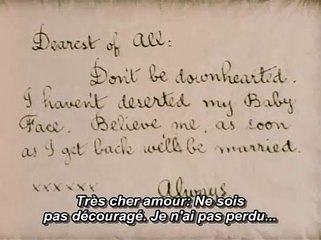 Dearest of All:
Don't be downhearted.
I haven't deserted my Baby
Face. Believe me, as soon
as I get back we'll be married.
xxxxxx Always
Très cher amour: Ne sois
pas découragé. Je n'ai pas perdu...